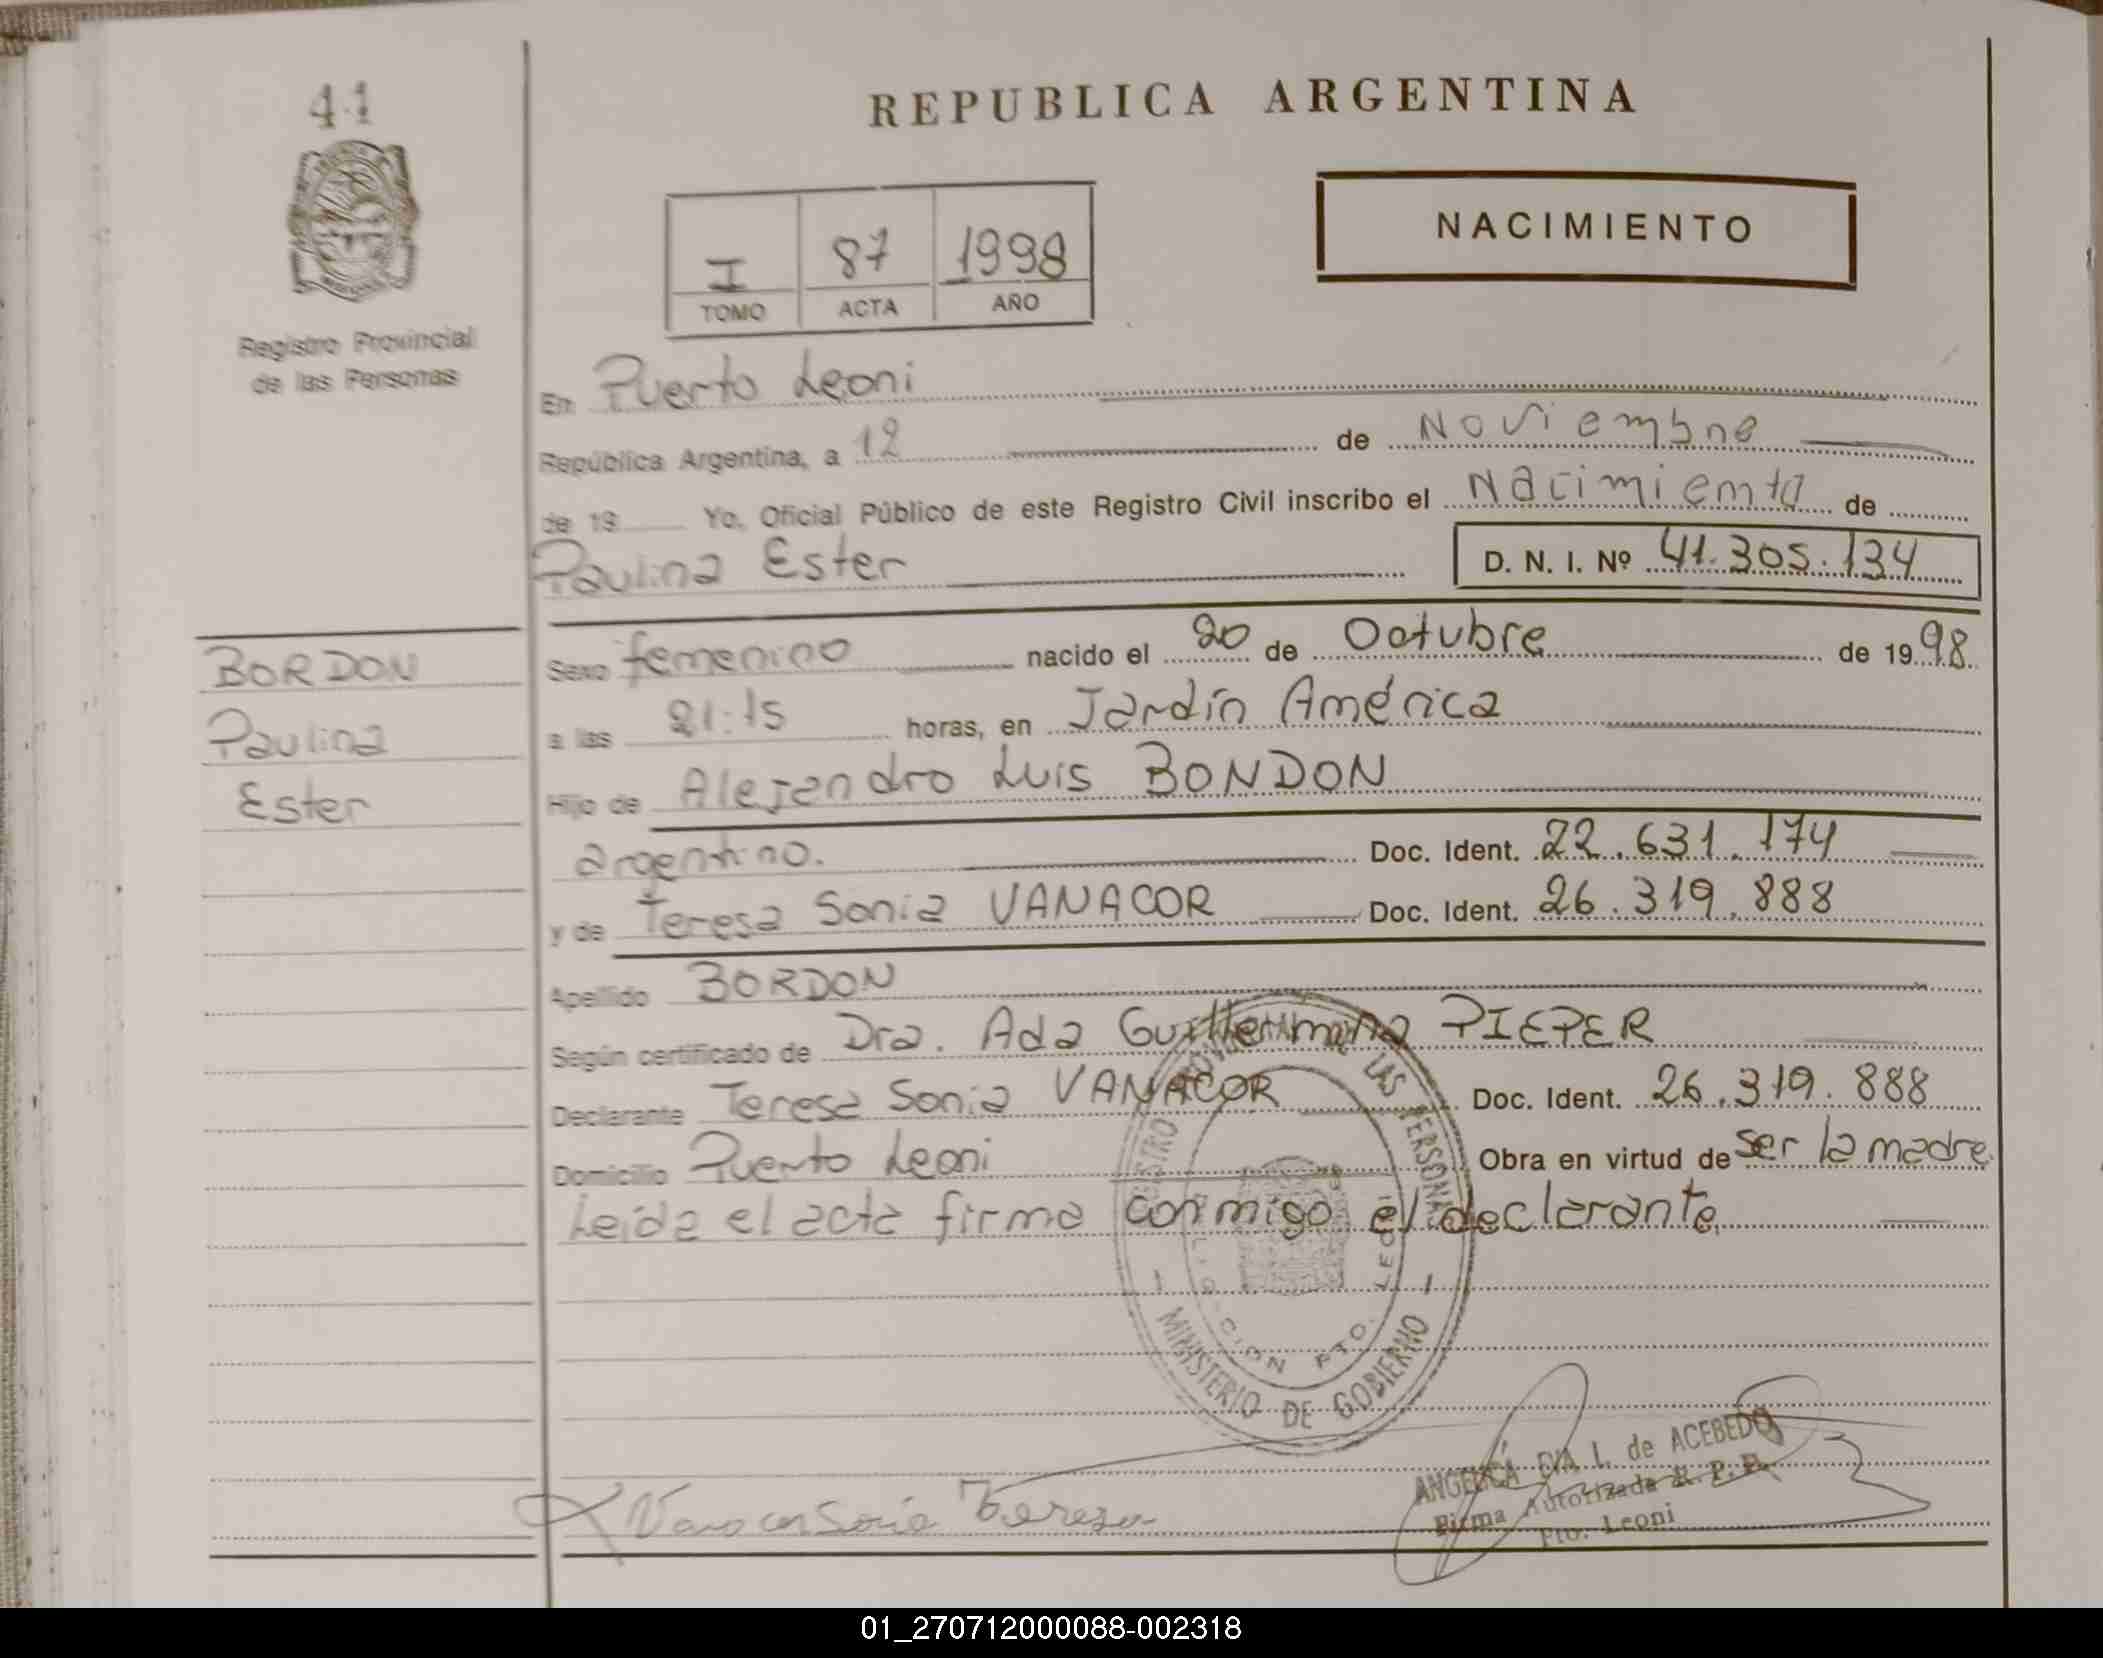 41
Registro Provincial
de las Personas
REPUBLICA ARGENTINA
NACIMIENTO
I 87 1998
TOMO ACTA AÑO
En Puerto Leoni
República Argentina, a 12 de Noviembre
de 19 Yo, Oficial Público de este Registro Civil inscribo el Nacimiento de
Paulina Ester D. N. I. Nº 41.305.134
BORDON
Paulina
Ester
Sexo femenino nacido el 20 de Octubre de 1998
a las 21:15 horas, en Jardín América
Hijo de Alejandro Luis BONDON
argentino. Doc. Ident. 22.631.174
y de Teresa Sonia VANACOR Doc. Ident. 26.319.888
Apellido BORDON
Según certificado de Dra. Ada Guillermina PIEPER
Declarante Teresa Sonia VANACOR Doc. Ident. 26.319.888
Domicilio Puerto Leoni Obra en virtud de ser la madre.
Leida el acta firma conmigo el declarante
LAS PERSONAS
MINISTERIO DE GOBIERNO
PTO. LEONI
Vanacor Sonia Teresa
ANGELICA L. de ACEBEDO
Firma Autorizada R. P. P.
Pto. Leoni
01_270712000088-002318